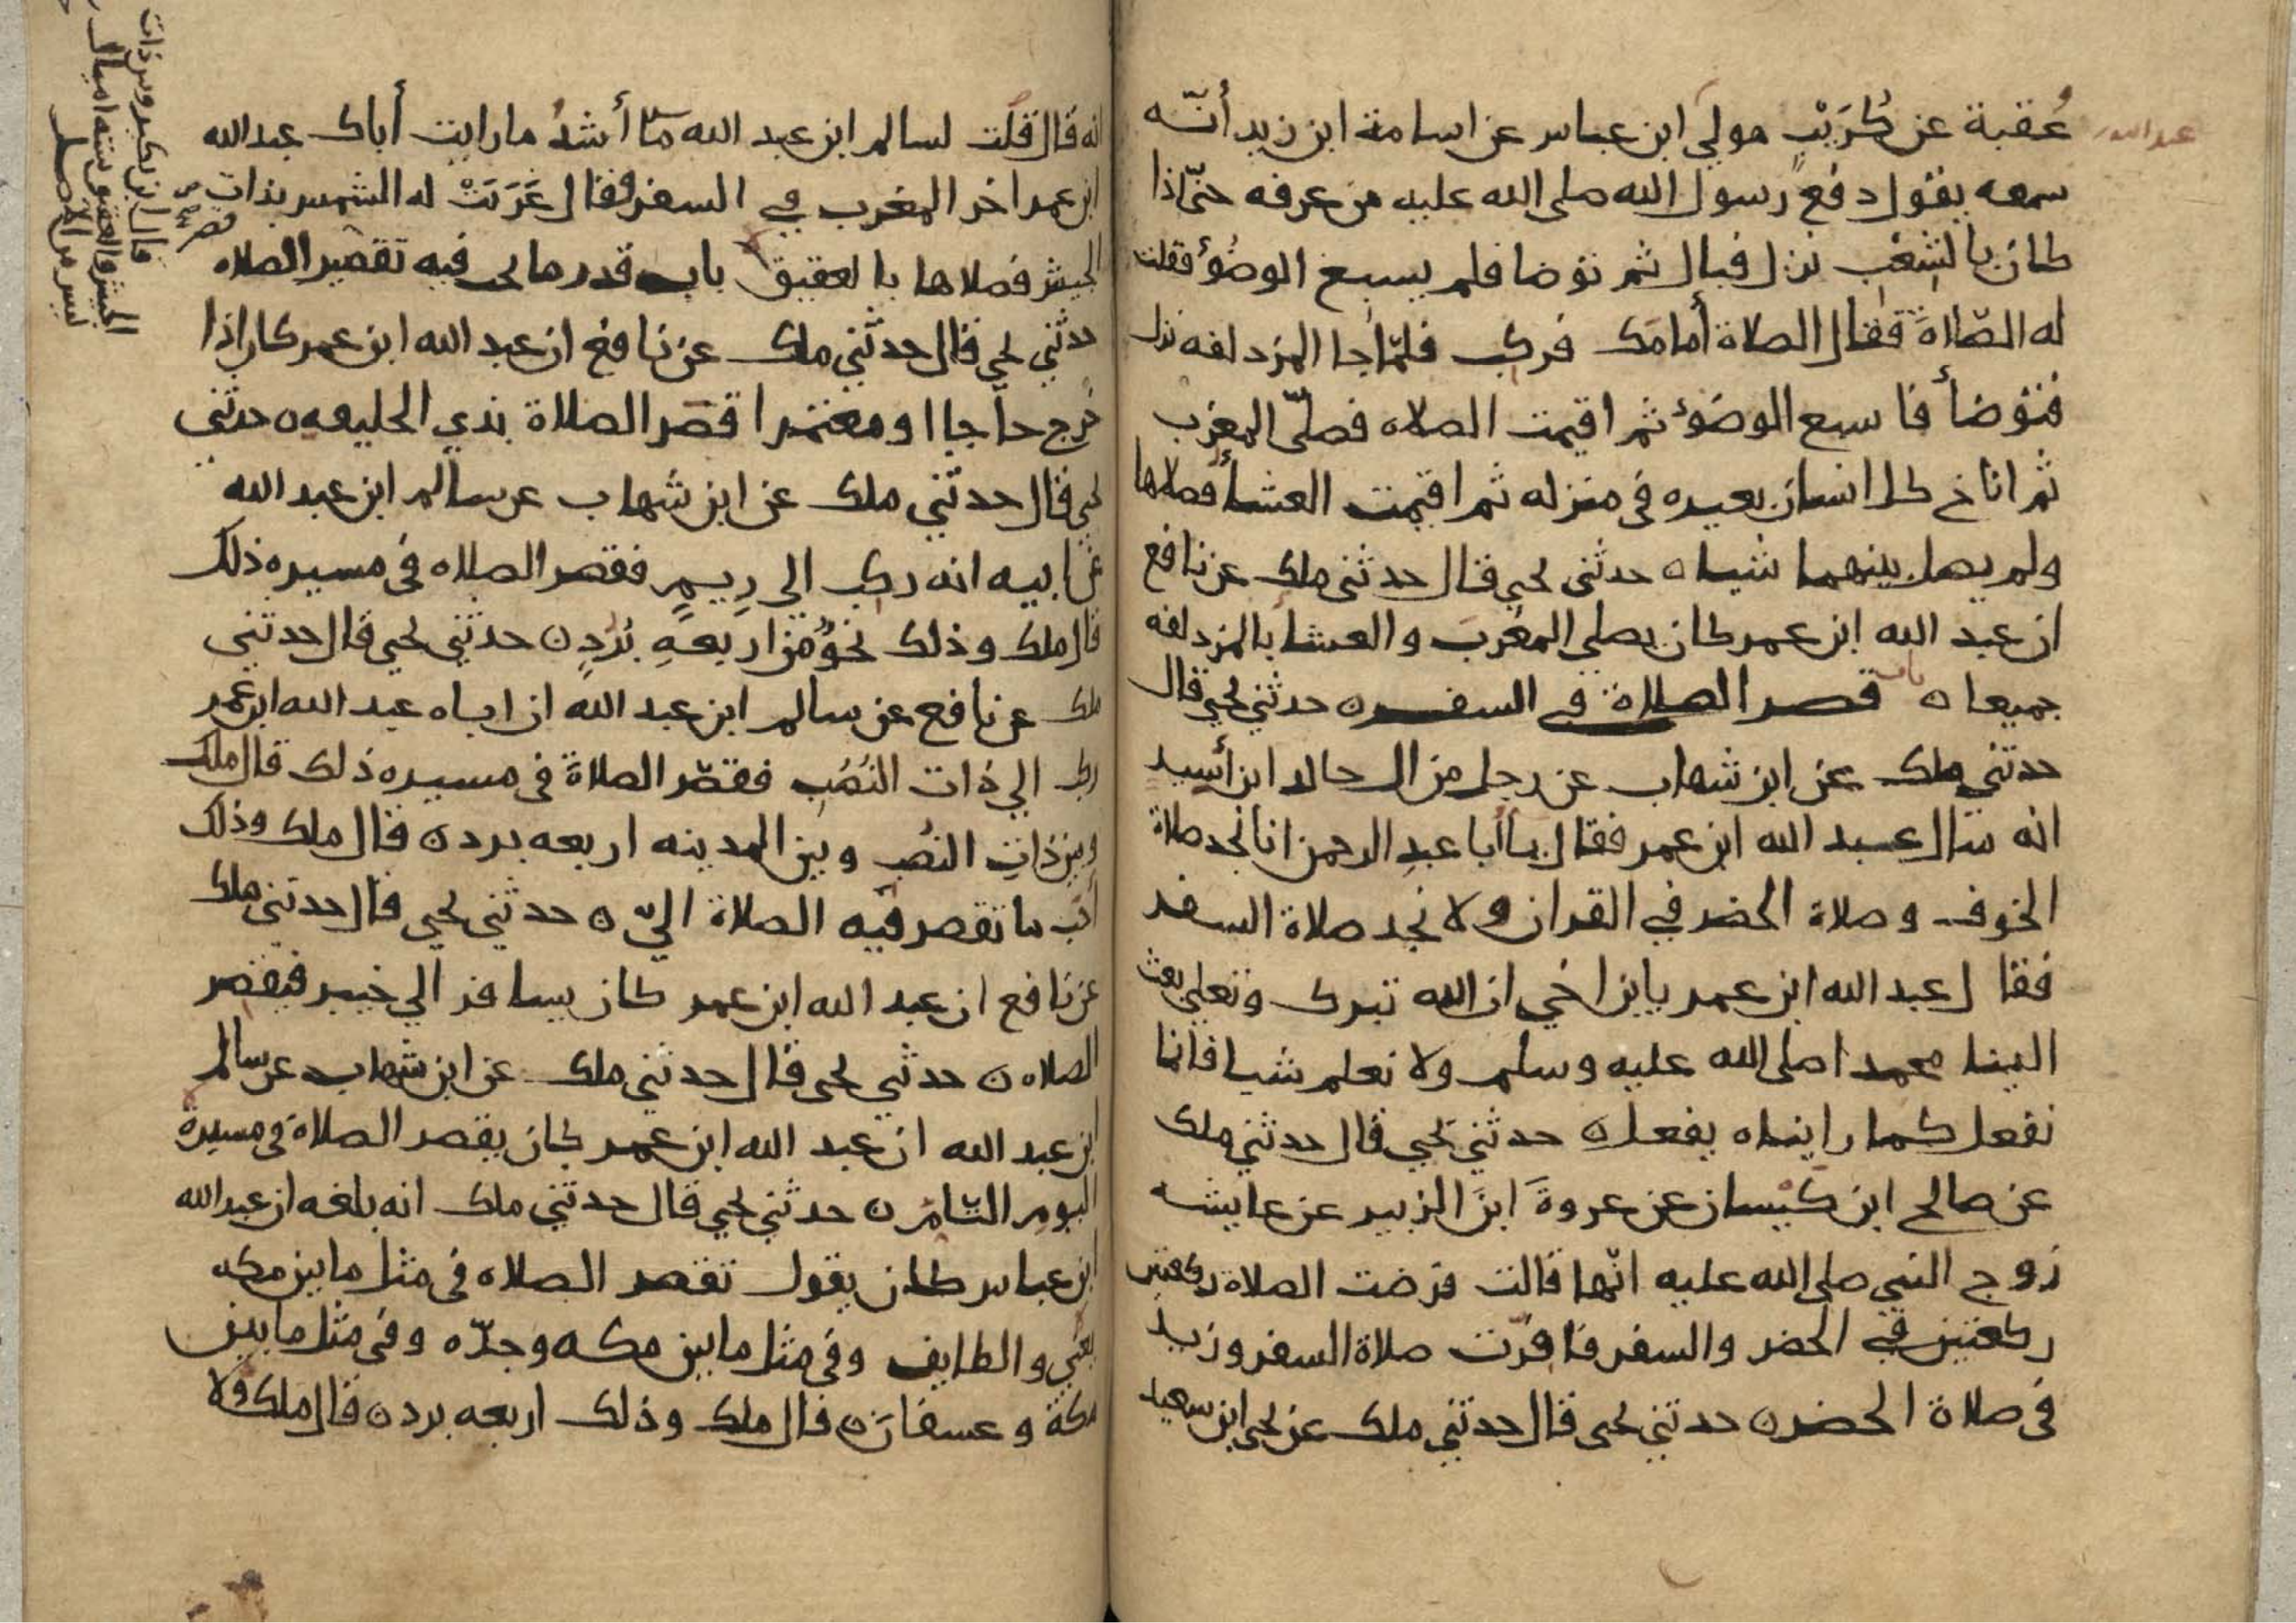 عبد الله
عُقبة عن كُرَيْبٍ مولي ابن عباس عن اسامة ابن زيد أنّه
سمعه يقول دفع رسول الله صلى الله عليه من عرفه حتّى اذا
كان بالشِعْبِ نزل فبال ثم توضا فلم يسبغ الوضُوءَ فقلت
له الصّلاةَ فقال الصلاة أمامَك فركب فلمّا جا المزدلفه نزل
فتوضأ فاسبع الوضوءَ ثم اقيمت الصلاه فصلّى المغرب
ثم اناخ كل انسان بعيره فى منزله ثم اقيمت العشأ فصلاها
ولم يصل بينهما شيا ه حدثنى يحيى قال حدثنى ملك عن نافع
ان عبد الله ابن عمر كان يصلي المغربَ والعشا بالمزدلفه
جميعا ه باب قصر الصلاة في السفر ه حدثني يحيى قال
حدثني ملك عن ابن شهاب عن رجل من ال خالد ابن أسيد
انه سال عبد الله ابن عمر فقال يا أبا عبدِ الرحمن انا نجد صلاة
الخوف وصلاة الحضر في القران ولا نجد صلاة السفر
فقال عبد الله ابن عمر يابن اخي ان الله تبرك وتعلي بعث
الينا محمدا صلى الله عليه وسلم ولا نعلم شيا فانما
نفعل كما رايناه يفعل ه حدثني يحيي قال حدثني ملك
عن صالح ابن كَيْسان عن عروةَ ابن الزبير عن عايشه
زوج النبي صلى الله عليه انّها قالت فرضت الصلاة ركعتين
ركعتين في الحضر والسفر فاقرّت صلاة السفر وزيد
فى صلاة الحضر ه حدثني يحيى قال حدثني ملك عن يحيى ابن سعيد
انه قال قلت لسالم ابن عبد الله مَا أشدُ ما رايت أباك عبد الله
ابن عمر اخر المغرب في السفر فقال غَرَبَتْ له الشمس بذات
الجيش فصلاها بالعقيق باب قدر ما يجب فيه تقصير الصلاه
حدثني يحيى قال حدثني ملك عن نافع ان عبد الله ابن عمر كان اذا
خرج حاجا او معتمرا قصَر الصلاة بذي الحليفه ه حدثني
يحيى قال حدثني ملك عن ابن شهاب عن سالم ابن عبد الله
عن ابيه انه ركب الى رِيمٍ فقصر الصلاه فى مسيره ذلك
قال ملك وذلك نحوٌ من اربعةِ بُرُدٍ ه حدثني يحيى قال حدثني
ملك عن نافع عن سالم ابن عبد الله ان اباه عبد الله ابن عمر
ركب الي ذات النُصُبِ فقصّر الصلاةَ فى مسيره ذلك قال ملك
وبين ذاتِ النصُب وبين المدينه اربعه برد ه قال ملك وذلك
احَب ما تقصر فيه الصلاة اليّ ه حدثني يحيى قال حدثني ملك
عن نافع ان عبد الله ابن عمر كان يسافر الي خيبر فيقصر
الصلاه ه حدثني يحيى قال حدثني ملك عن ابن شهاب عن سالم
ابن عبد الله ان عبد الله ابن عمر كان يقصر الصلاة فى مسيرة
اليومِ التامّ ه حدثني يحيى قال حدثني ملك انه بلغه ان عبد الله
ابن عباس كان يقول تقصر الصلاه فى مثل ما بين مكه
يعني والطايف وفى مثل ما بين مكه وجدّه وفى مثل ما بين
مكة وعسفانَ ه قال ملك وذلك اربعه برد ه قال ملك ولا
قال ابن بكير وبين ذات
الجيش والعقيق ستة اميال
ليس من الاصل